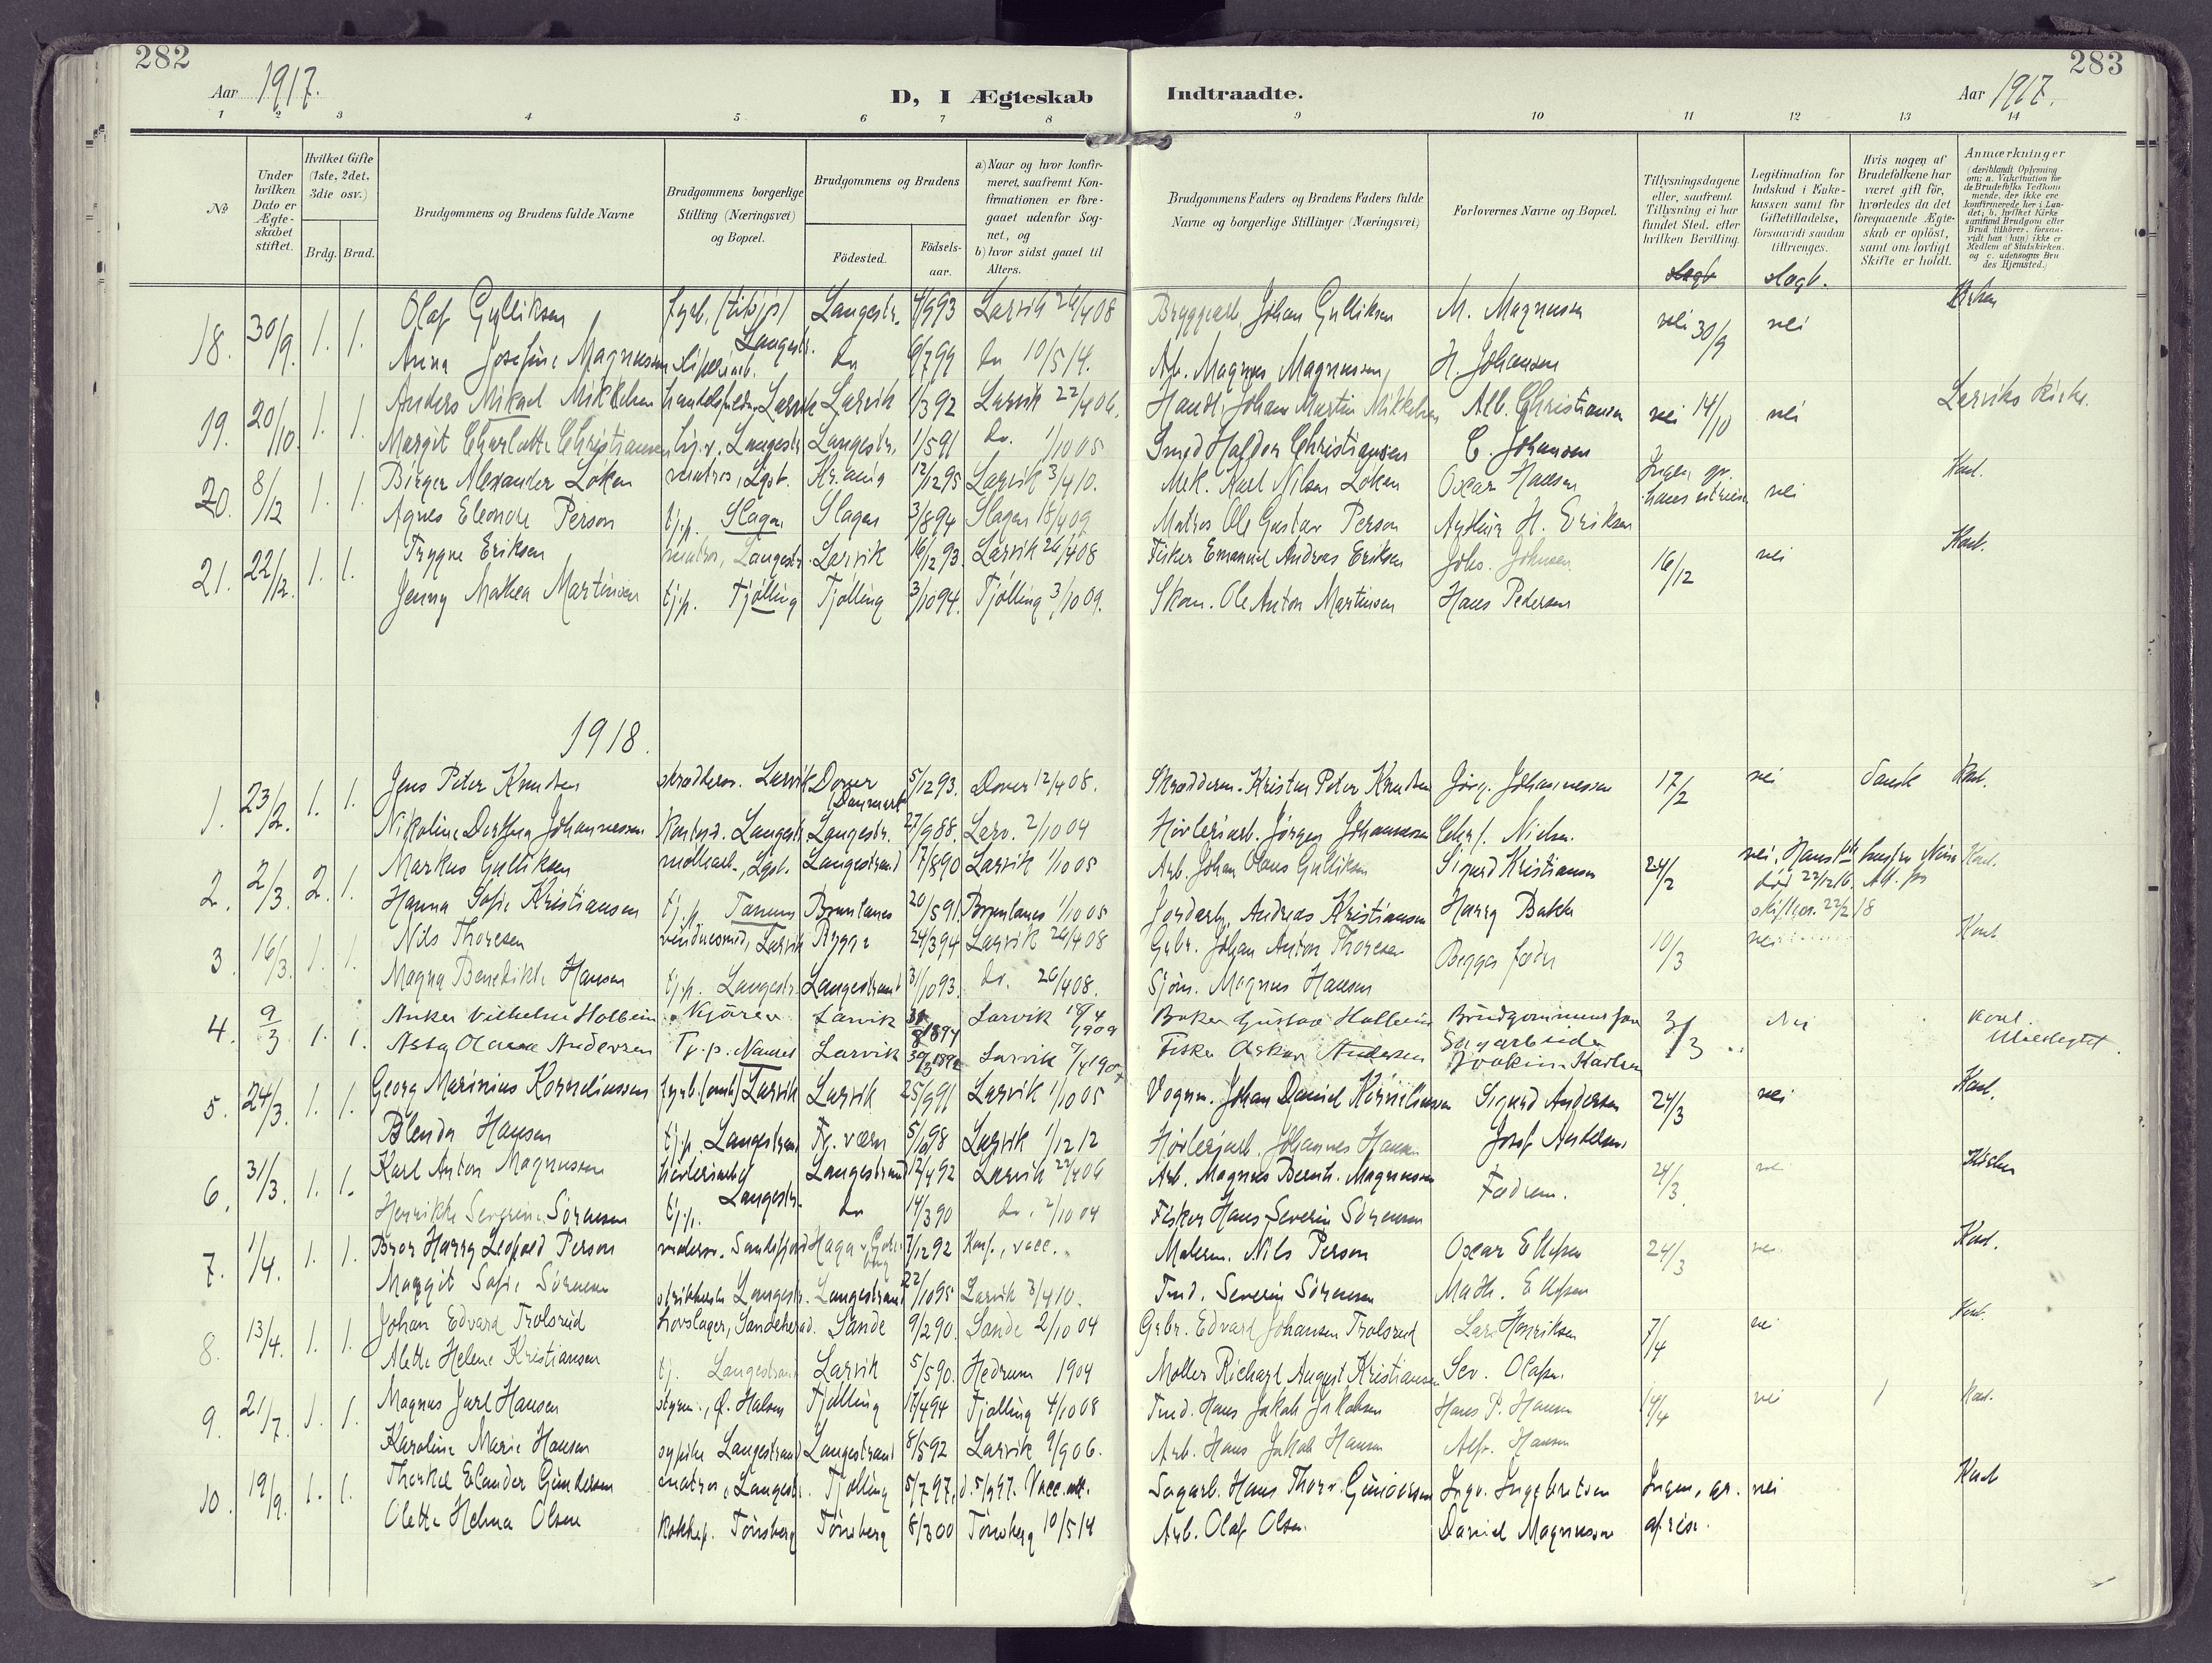 282
283
Aar 1917.
D, I Ægteskab
Indtraadte.
Aar 1917.
1 2 3 4 5 6 7 8 9 10 11 12 13 14
No
Under hvilken Dato er Ægteskabet stiftet.
Hvilket Gifte (1ste, 2det, 3die osv.)
Brdg. Brud.
Brudgommens og Brudens fulde Navne
Brudgommens borgerlige Stilling (Næringsvei) og Bopæl.
Brudgommens og Brudens
Fødested.
Fødselsaar.
a) Naar og hvor konfirmeret, saafremt Konfirmationen er foregaaet udenfor Sognet, og
b) hvor sidst gaaet til Alters.
Brudgommens Faders og Brudens Faders fulde Navne og borgerlige Stillinger (Næringsvei)
Forlovernes Navne og Bopæl.
Tillysningsdagene eller, saafremt Tillysning ei har fundet Sted, efter hvilken Bevilling.
Legitimation for Indskud i Enkekassen samt for Giftetilladelse, forsaavidt saadan tiltrænges.
Hvis nogen af Brudefolkene har været gift før, hvorledes da det foregaaende Ægteskab er opløst, samt om lovligt Skifte er holdt.
Anmærkninger (deriblandt Oplysning om: a. Vakcination for de Brudefolks Vedkommende, der ikke ere konfirmerede her i Landet; b. hvilket Kirkesamfund Brudgom eller Brud tilhører, forsaavidt han (hun) ikke er Medlem af Statskirken, og c. udensogns Brudes Hjemsted.)
18. 30/9. 1. 1. Olaf Gulliksen Langestr. 4/9 93 Larvik 26/4 08 Johan Gulliksen M. Magnusen nei 30/9 nei Kirken
Anna Josefine Magnusen Langestr. do 6/7 99 do 10/5 14. Arb. Magnus Magnusen, H. Johansen
19. 20/10. 1. 1. Anders Mikael Mikkelsen Larvik Larvik 1/3 92 Larvik 22/4 06. Handl. Johan Martin Mikkelsen Alb. Christiansen nei 14/10 nei Larviks kirke.
Margit Charlotte Christiansen Langestr. Langestr. 1/5 91 do. 1/10 05 Smed Halvor Christiansen C. Johansen
20. 8/12 1. 1. Birger Alexander Løken matros, Lgst. Kr.ania 12/12 95 Larvik 3/4 10. Mek. Karl Nilsen Løken Oscar Hansen Ingen, gr. hans utreise nei Kont.
Agnes Eleonore Person tj.p. Slagen Slagen 3/8 94 Slagen 18/4 09 Matros Ole Gustav Person Arthur H. Eriksen
21. 22/12. 1. 1. Trygve Eriksen matros, Langestr. Larvik 16/12 93. Larvik 26/4 08 Fisker Emanuel Andreas Eriksen Johs. Johnsen 16/12 nei Kont.
Jenny Mathea Martinsen tj.p. Tjølling Tjølling 3/10 94. Tjølling 3/10 09. Skom. Ole Anton Martinsen Hans Pedersen
1918.
1. 23/2. 1. 1. Jens Peter Knudsen skræddersv. Larvik Dover (Danmark) 5/12 93. Dover 12/4 08. Skrædderm. Kristen Peter Knudsen Jørg. Johannessen 17/2 nei dansk Kont.
Nikoline Dorthea Johannessen Langestr. Langestr. 27/9 88. Larv. 2/10 04 Høvleriarb. Jørgen Johannessen Chr. f. Nielsen.
2. 2/3. 2. 1. Markus Gulliksen møllearb., Lgst. Langestrand 17/8 90 Larvik 1/10 05 Arb. Johan Claus Gulliksen Sigurd Kristiansen 24/2 nei. Hans hustru død 22/12 16. Att. fra skifteret 22/2 18 Kont.
Hanna Sofie Kristiansen tj.p. Tanum Brunlanes 20/5 91. Brunlanes 1/10 05 Jordarb. Andreas Kristiansen Harry Bakke
3. 16/3. 1. 1. Nils Thoresen Larvik Rygge 24/3 94 Larvik 26/4 08 Grbr. Johan Anton Thoresen Begges fædre 10/3 nei Kont
Magna Benedikte Hansen tj.p. Langestr. Langestrand 31/10 93. do. 26/4 08. Sjøm. Magnus Hansen
4. 9/3 1. 1. Anker Vilhelm Holbein Kjøren Larvik 1894 Larvik 18/4 1909 Baker Gustav Holbein Brudgommens far 3/3 Nei Kont.
Asta Olava Andersen Tj.p. Nanset Larvik 30/3 1892 Larvik Fisker Oskar Andersen Sagarbeider Joakim Karlsen
5. 24/3. 1. 1. Georg Marinius Korneliussen Larvik Larvik 25/9 91 Larvik 1/10 05 Vognm. Johan Daniel Korneliussen Sigurd Andersen 24/3 nei Kont.
Blenda Hansen tj.p. Langestrand Fr. værn 98 Larvik 1/12 12 Høvleriarb. Johannes Hansen Josef Andersen
6. 31/3. 1. 1. Karl Anton Magnusen høvleriarb. Langestr. Langestrand 12/4 92 Larvik 22/4 06 Arb. Magnus Bernh. Magnussen Fædrene. 24/3. nei Kirken
Henrikke Severine Sørensen tj.p. do 14/3 90 do. 2/10 04 Fisker Hans Severin Sørensen
7. 1/4. 1. 1. Bror Harry Leopold Person Sandefjord Haga v. Göteborg 7/12 92 Konf., vacc. Malerm. Nils Person Oscar Ellefsen 24/3 nei Kont.
Maggit Sofie Sørensen Langestr. Langestrand 22/10 95 Larvik 3/4 10. Tmd. Severin Sørensen Math. Ellefsen
8. 13/4. 1. 1. Johan Edvard Trolsrud hovslager, Sandeherad. Sande 9/2 90. Sande 2/10 04 Grbr. Edvard Johansen Trolsrud Lars Henriksen 7/4 nei Kont.
Alette Helene Kristiansen tj. Langestrand Larvik 5/5 90. Hedrum 1904 Møller Richart August Kristiansen Sev. Olafsen.
9. 21/7. 1. 1. Magnus Jarl Hansen styrm., Ø. Halsen Tjølling 17/4 94 Tjølling 4/10 08 Tmd. Hans Jakob Jakobsen Hans P. Hansen 14/4 nei Kont.
Karoline Marie Hansen sypike Langestrand Langestrand 8/5 92 Larvik 9/9 06. Arb. Hans Jakob Hansen Alfr. Hansen
10. 19/9. 1. 1. Thorkel Elander Gundersen matros, Langestr. Tjølling 5/7 97, Vacc. att. Sagarb. Hans Thorv. Gundersen Ingv. Ingebretsen Ingen, gr. nei Kont
Olette Helma Olsen Kokkep. Tønsberg Tønsberg 8/3 00 Tønsberg 10/5 14 Arb. Olaf Olsen. Daniel Magnussen afreise.